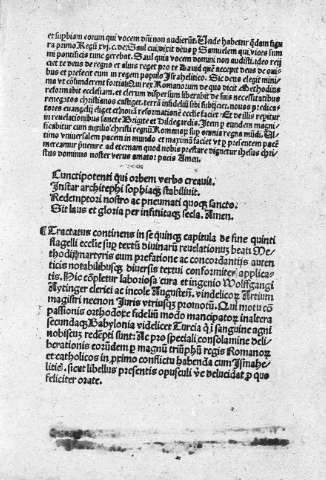 et sophiam eorum qui vocem dñi non audierūt. Unde habetur
ra primo Regū xvi. c. der Saul cui dixit deus
mi parvifica tunc perebat. Saul quia vocem domini non audisti. ideo reij
cit te deus de regno et alius reget pro te David quē accepit deus de ovi⸗
bus et prefecit eum in regem populo Israhelitico. Sic deus elegit
vilē et contemptū fortia Qui rex Romanorum de quo dicit Methodius
reformabit ecclesiam. et clerum dispersum liberabit de suis necessitatibus
renegatos christianos castiget. terrā infideliū sibi subijcet. novos predica⸗
tores evangelij eliget et nova reformatione ecclesie faciet Et de illis repitur
in revelacionibus sancte Brigitte et Hildegardis. Item
ficabitur cum auxilio christi regnū Romanorū sup omnia regna mūdi. Ul⸗
timo universalem pacem in mundo et maximā faciet ut presentem pacē
mereamur futurā ad eternam quod nobis prestare dignetur ihesus chri⸗
stus dominus noster verus amator pacis Amen.
Cunctipotenti qui orbem verbo creavit.
Instar architephi sophiaqȝ stabilivit.
Redemptori nostro ac pneumati quoqȝ sancto.
Sit laus et gloria per infinitaqȝ secla. Amen.
Tractatus continens in se quinqȝ capitula de fine quinti
flagelli ecclie sup textū divinarū revelationuȝ beati Me⸗
thodij martyris cum prefatione ac concordantijs auten
ticis notabilibusqȝ diversis textui conformiter applica⸗
tis. Hoc cōpletur laboriosa cura et ingenio Wolffgangi
Aytinger clerici ac incole Augusteñ. vindelicoȝ Artium
magistri necnon Juris vtriusqȝ promoti. Qui motu cō
passionis orthodoxe fideliū modo mancipatorȝ in altera
secundaqȝ Babylonia videlicet Turcia q̄ i sanguine agni
nobiscuȝ redēpti sunt: Ac pro speciali consolamine deli⸗
berationis eorūdem ꝑ magnū triūphū regis Romanorȝ
et catholicos in primo conflictu habenda cum Ismahe⸗
litis. sicut libellus presentis opusculi vʼe delucidat ꝑ quo
feliciter orate.